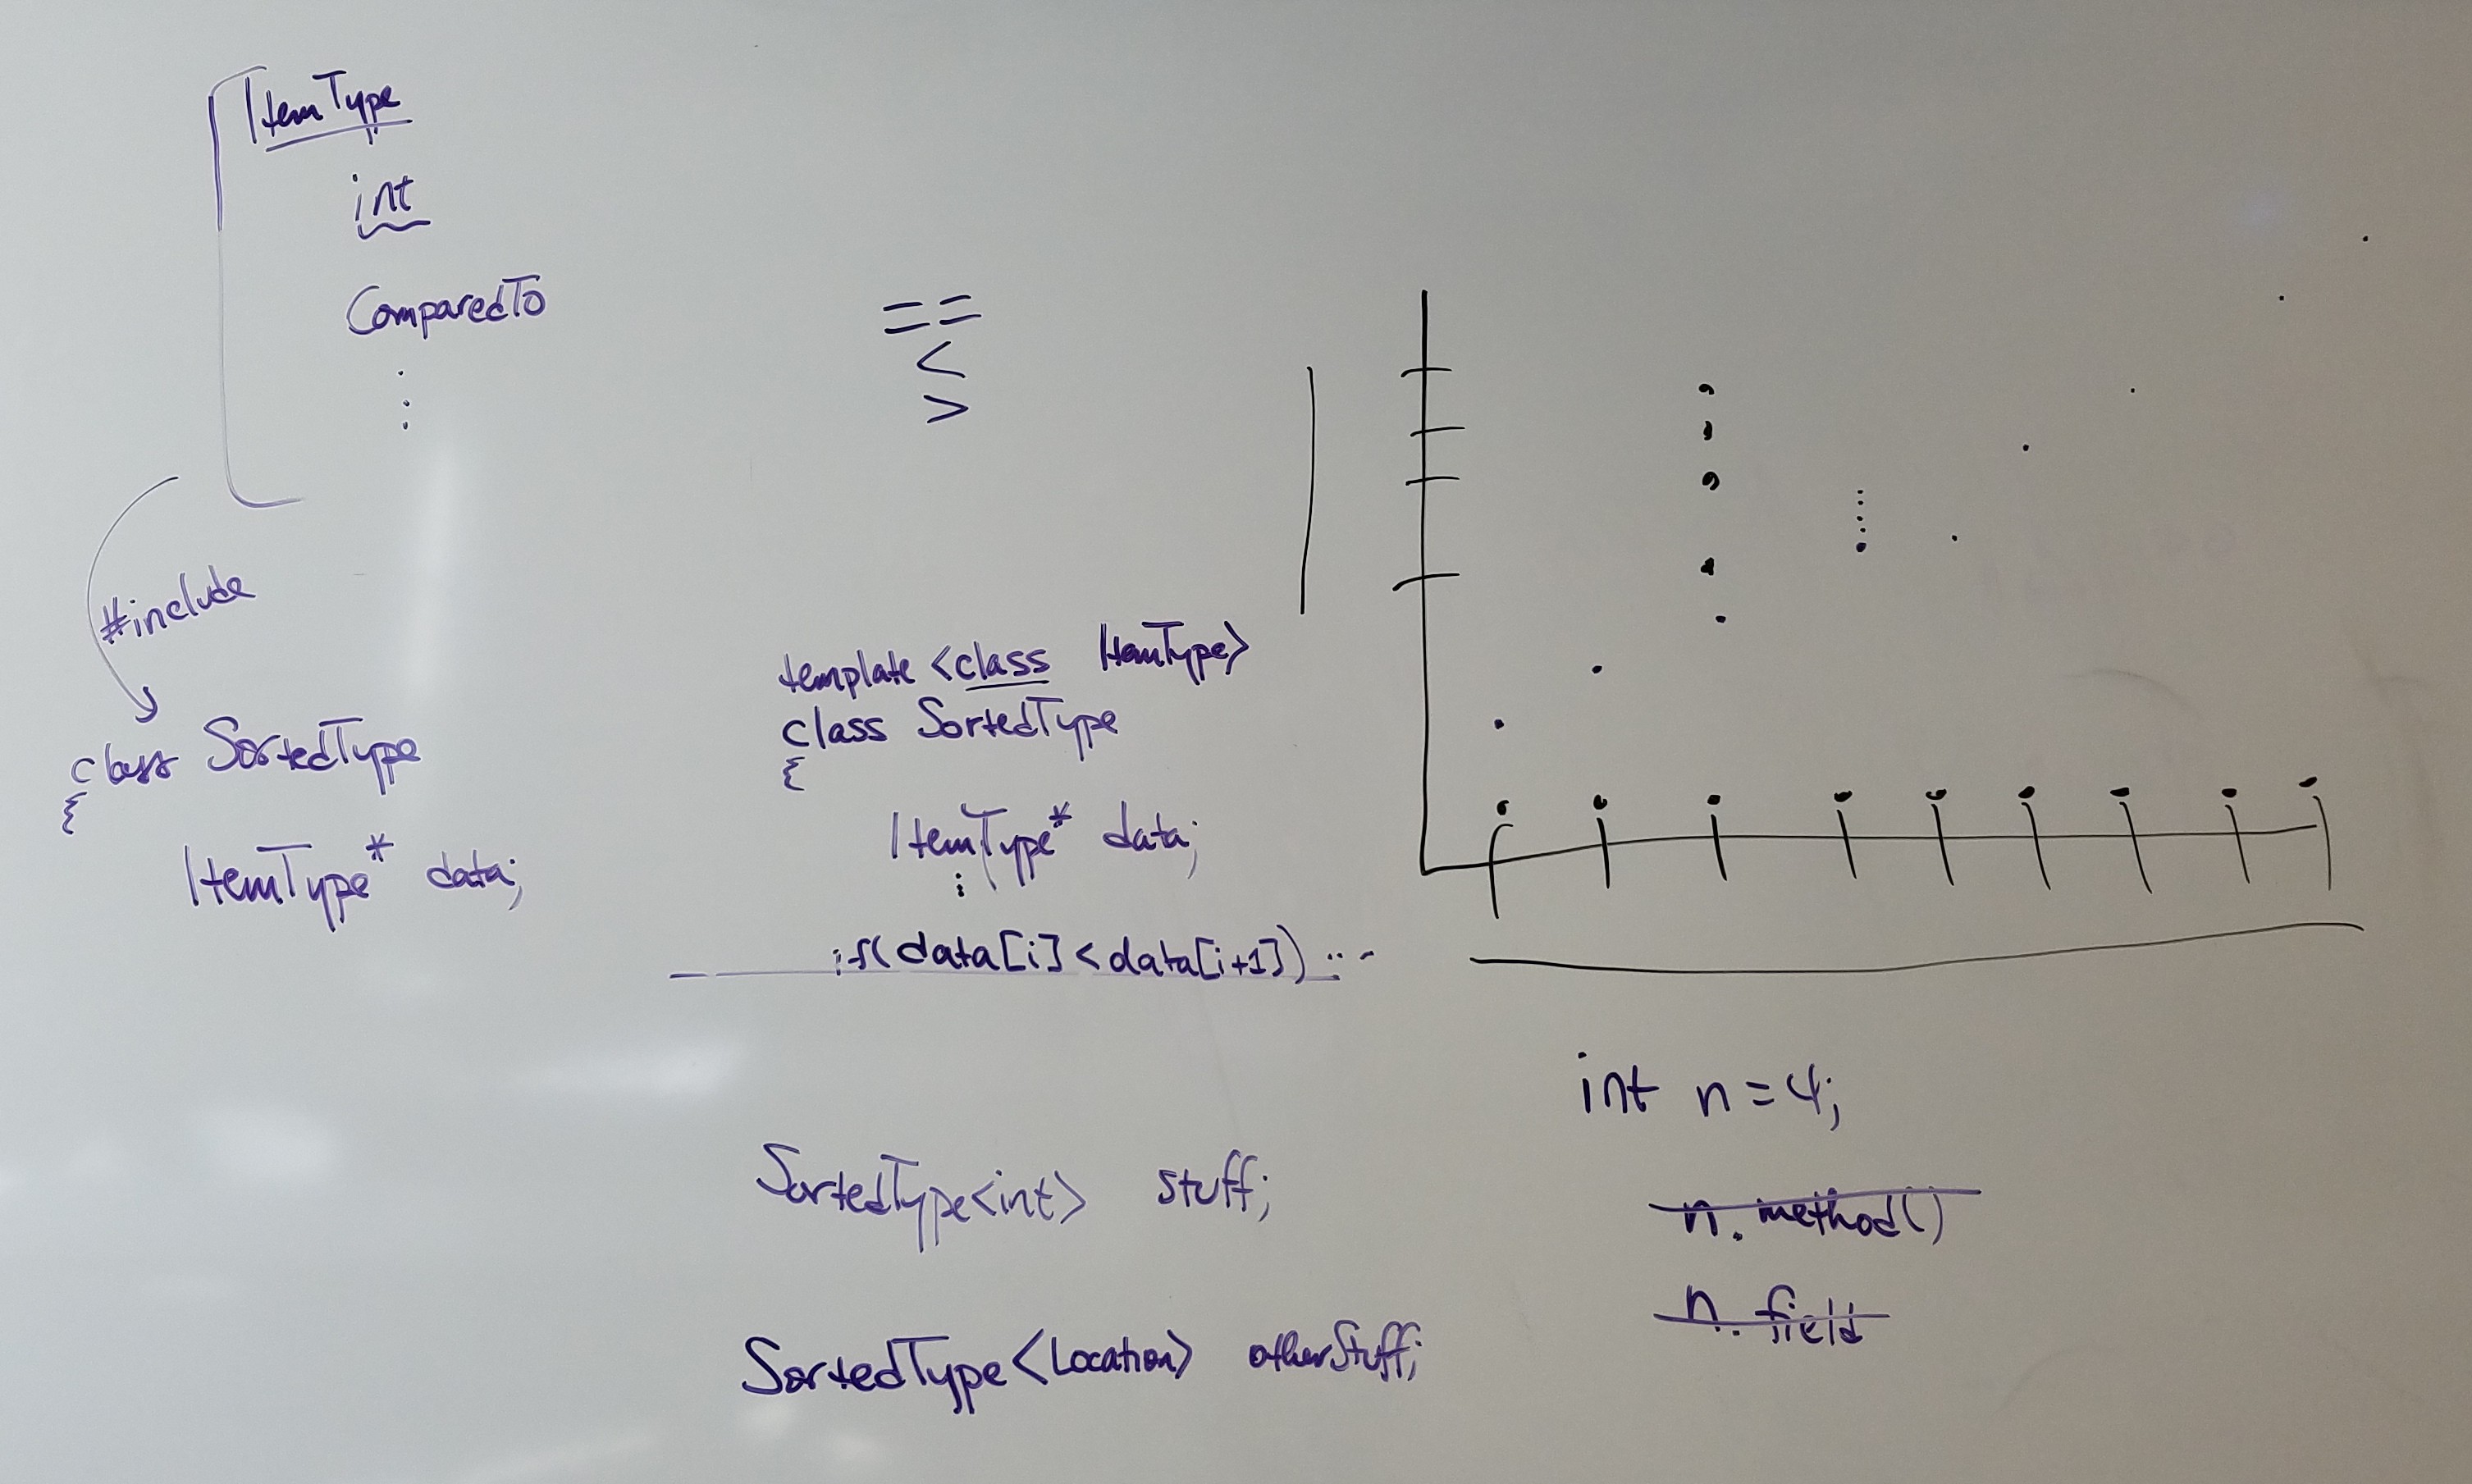 ItemType
int
ComparedTo
#include
class SortedType
{
ItemType* data;
==
<
>
template <class ItemType>
class SortedType
{
ItemType* data;
if(data[i]<data[i+1]) ...
SortedType<int> stuff;
SortedType<Location> otherStuff;
int n=4;
n.method()
n.field